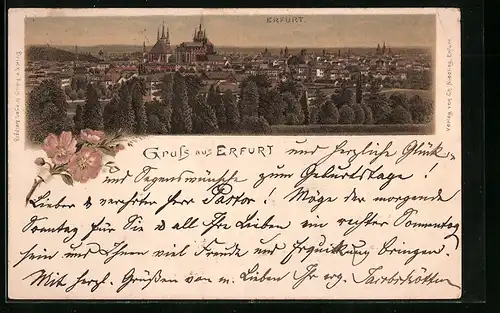 ERFURT.
Gruß aus ERFURT und herzliche Glück-
und Segenswünsche zum Geburtstage!
Lieber & verehrter Herr Pastor! Möge der morgende
Sonntag für Sie & all Ihre Lieben ein rechter Sonnentag
sein und Ihnen viel Freude und Erquickung bringen.
Mit herzl. Grüßen von m. Lieben Ihr erg.
Verlag von
Erfurt